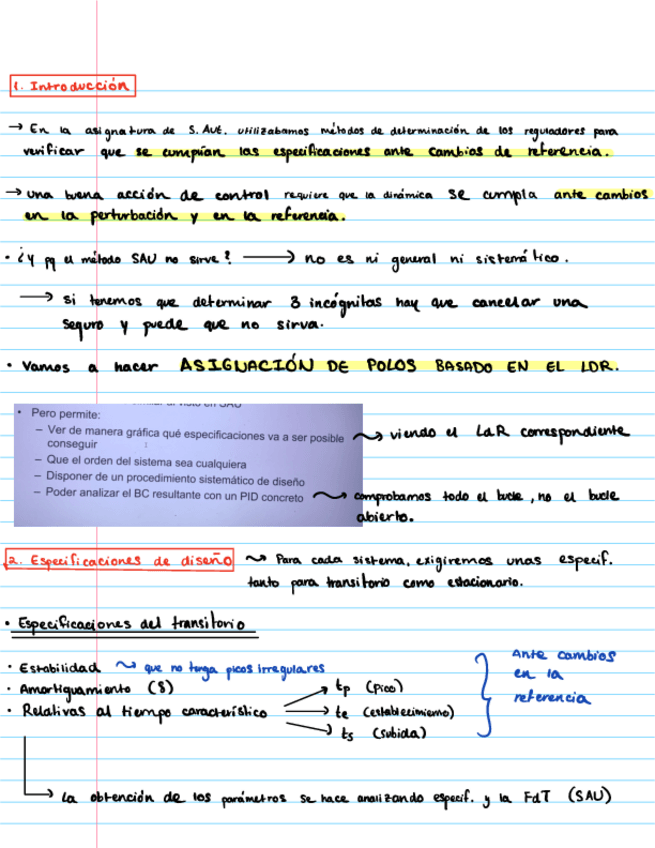 1. Introducción
→ En la asignatura de S. Aut. utilizabamos métodos de determinación de los reguladores para
verificar que se cumplían las especificaciones ante cambios de referencia.
→ una buena acción de control requiere que la dinámica se cumpla ante cambios
en la perturbación y en la referencia.
• ¿Y pq el método SAU no sirve? → no es ni general ni sistemático.
→ si tenemos que determinar 3 incógnitas hay que cancelar una
seguro y puede que no sirva.
• Vamos a hacer ASIGNACIÓN DE POLOS BASADO EN EL LDR.
• Pero permite:
– Ver de manera gráfica qué especificaciones va a ser posible
conseguir
viendo el LdR correspondiente
– Que el orden del sistema sea cualquiera
– Disponer de un procedimiento sistemático de diseño
– Poder analizar el BC resultante con un PID concreto
comprobamos todo el bucle, no el bucle
abierto.
2. Especificaciones de diseño ~> Para cada sistema, exigiremos unas especif.
tanto para transitorio como estacionario.
• Especificaciones del transitorio
• Estabilidad ~> que no tenga picos irregulares
• Amortiguamiento (δ)
• Relativas al tiempo característico
→ tp (pico)
→ te (establecimiento)
→ ts (subida)
Ante cambios
en la
referencia
→ La obtención de los parámetros se hace analizando especif. y la FdT (SAU)